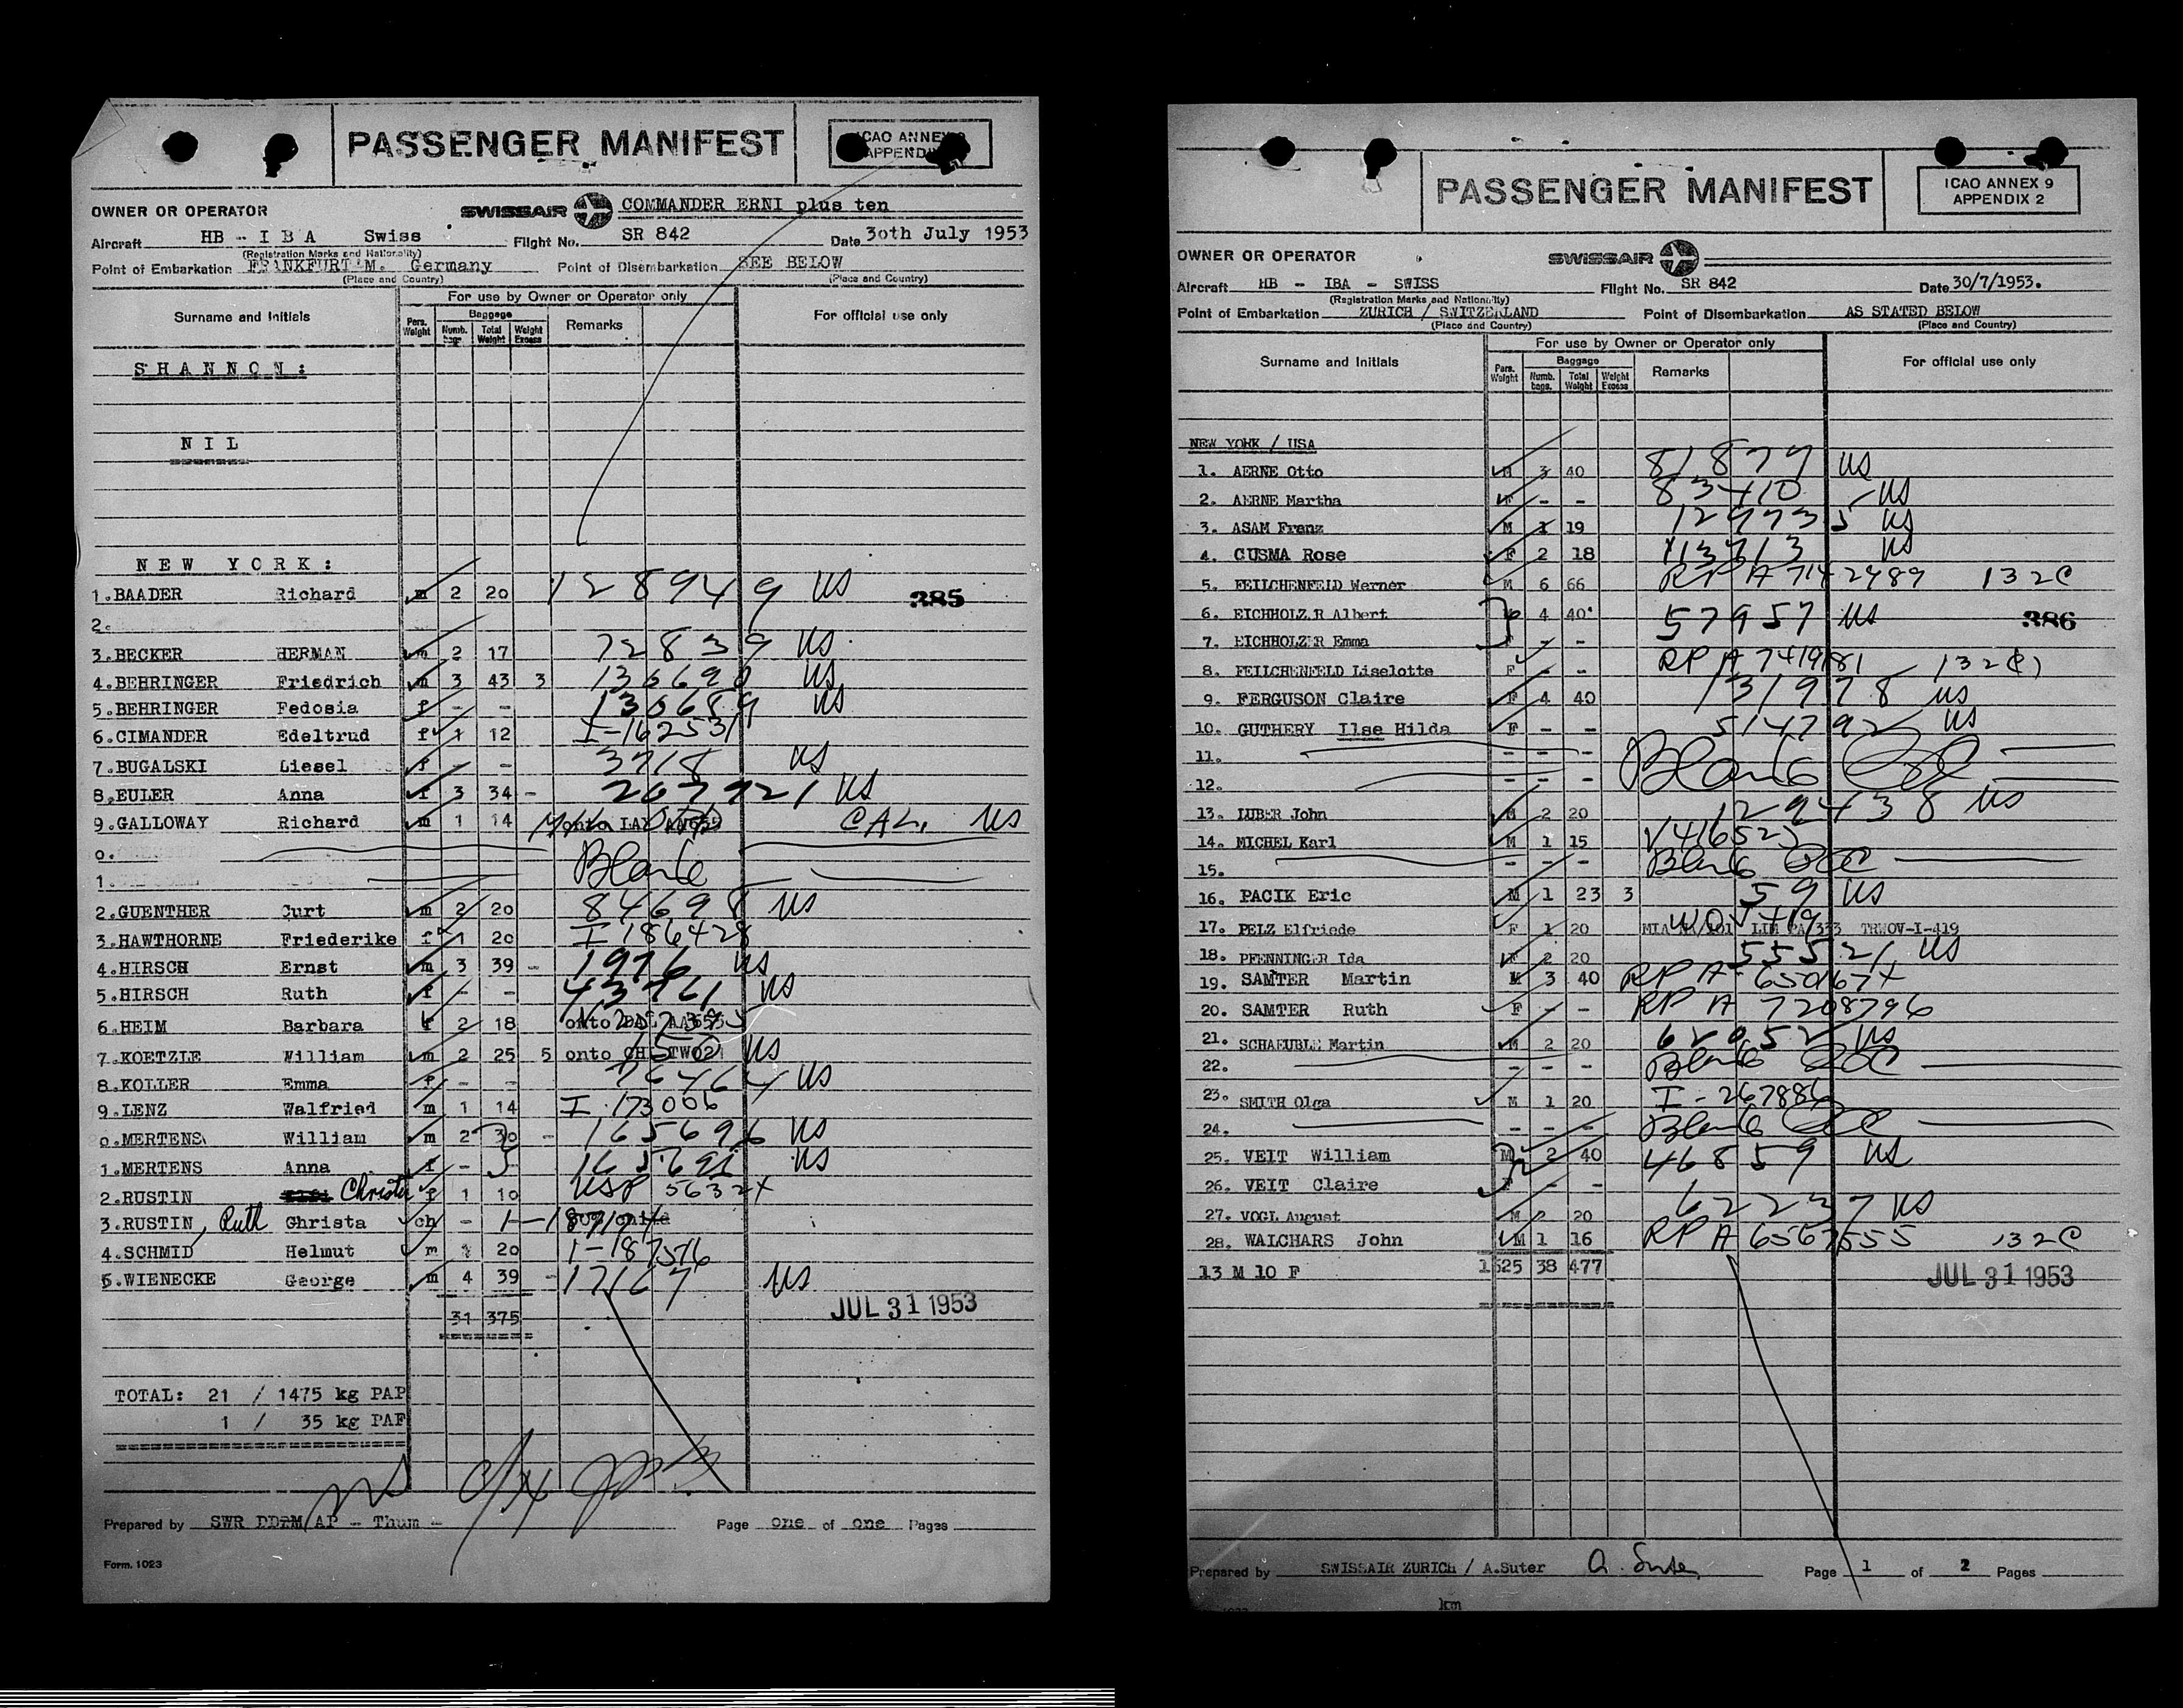 PASSENGER MANIFEST
ICAO ANNEX 9
APPENDIX
OWNER OR OPERATOR SWISSAIR COMMANDER ERNI plus ten
Aircraft HB - I B A Swiss Flight No. SR 842 Date 30th July 1953
(Registration Marks and Nationality)
Point of Embarkation FRANKFURT M. Germany Point of Disembarkation SEE BELOW
(Place and Country) (Place and Country)
For use by Owner or Operator only
Surname and Initials Pers. Weight Baggage Numb. bags Total Weight Weight Excess Remarks For official use only
S H A N N O N :
N I L
N E W Y O R K :
1.BAADER Richard m 2 20 128949 US 385
2.
3.BECKER HERMAN m 2 17 72839 US
4.BEHRINGER Friedrich m 3 43 3 130690 US
5.BEHRINGER Fedosia f - - 130689 US
6.CIMANDER Edeltrud f 1 12 I-162531
7.BUGALSKI Liesel f - - 3718 US
8.EULER Anna f 3 34 - 207721 US
9.GALLOWAY Richard m 1 14 onto LAX CAL. US
0.
1. Blank
2.GUENTHER Curt m 2 20 84698 US
3.HAWTHORNE Friederike f 1 20 I 186428
4.HIRSCH Ernst m 3 39 - 1976 US
5.HIRSCH Ruth f - - 43761 US
6.HEIM Barbara f 2 18 onto DAL AA655
7.KOETZLE William m 2 25 5 onto CHI TW021 US
8.KOLLER Emma f - - 76464 US
9.LENZ Walfried m 1 14 I 173006
0.MERTENS William m 2 30 - 165696 US
1.MERTENS Anna f - - US
2.RUSTIN Christa f 1 10 USP 56324
3.RUSTIN, Ruth Christa ch - child
4.SCHMID Helmut m 20 I-187576
5.WIENECKE George m 4 39 - 17167 US
31 375
JUL 31 1953
TOTAL: 21 / 1475 kg PAP
1 / 35 kg PAF
Prepared by SWR DDRM/AP - Thum - Page one of one Pages
Form. 1023
PASSENGER MANIFEST
ICAO ANNEX 9
APPENDIX 2
OWNER OR OPERATOR SWISSAIR
Aircraft HB - IBA - SWISS Flight No. SR 842 Date 30/7/1953.
(Registration Marks and Nationality)
Point of Embarkation ZURICH / SWITZERLAND Point of Disembarkation AS STATED BELOW
(Place and Country) (Place and Country)
For use by Owner or Operator only
Surname and Initials Pers. Weight Baggage Numb. bags. Total Weight Weight Excess Remarks For official use only
NEW YORK / USA
1. AERNE Otto M 3 40 81877 US
2. AERNE Martha F - - 83410 US
3. ASAM Franz M 1 19 129735 US
4. CUSMA Rose F 2 18 113713 US
5. FEILCHENFELD Werner M 6 66 RP A 7142989 132C
6. EICHHOLZER Albert M 4 40 57957 US 386
7. EICHHOLZER Emma F - -
8. FEILCHENFELD Liselotte F - - RP A 7419181 132C
9. FERGUSON Claire F 4 40 131978 US
10. GUTHERY Ilse Hilda F - - 514792 US
11. - - -
12. - - - Blank
13. LUBER John M 2 20 129438 US
14. MICHEL Karl M 1 15 V416525
15. - - - Blank
16. PACIK Eric M 1 23 3 59 US
17. PELZ Elfriede F 1 20 TRWOV-I-419
18. PFENNINGER Ida F 2 20 55521 US
19. SAMTER Martin M 3 40 RP A-
20. SAMTER Ruth F - - RP A 7208796
21. SCHAEUBLE Martin M 2 20 62052 US
22. - - - Blank
23. SMITH Olga M 1 20 I-267886
24. - - - Blank
25. VEIT William M 2 40 46859 US
26. VEIT Claire F - -
27. VOGL August M 2 20 62237 US
28. WALCHARS John M 1 16 RP A 6567555 132C
13 M 10 F 1625 38 477
JUL 31 1953
Prepared by SWISSAIR ZURICH / A.Suter A. Suter Page 1 of 2 Pages
km